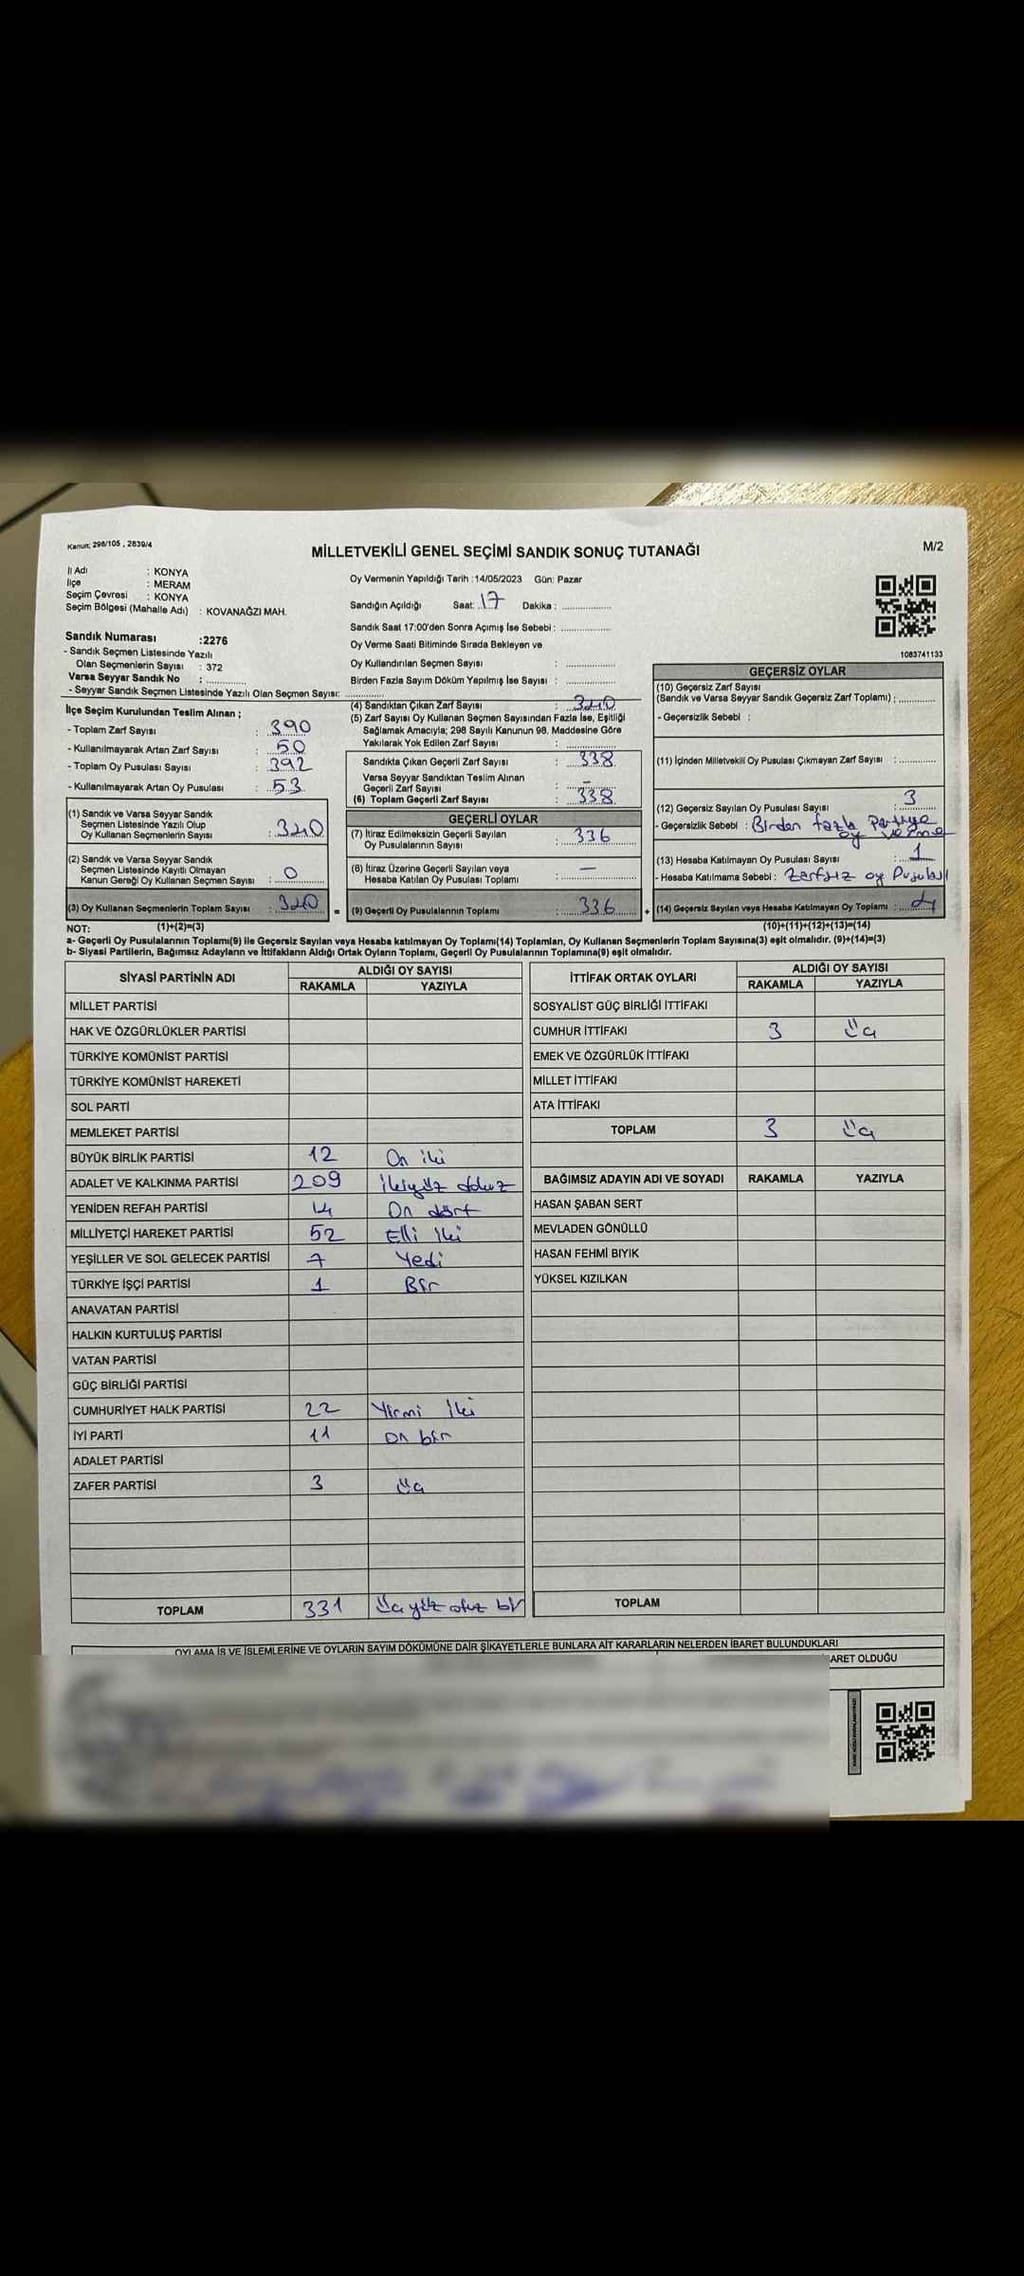 Kanun: 298/105 , 2839/4
MİLLETVEKİLİ GENEL SEÇİMİ SANDIK SONUÇ TUTANAĞI
M/2
İl Adı : KONYA
İlçe : MERAM
Seçim Çevresi : KONYA
Seçim Bölgesi (Mahalle Adı) : KOVANAĞZI MAH.
Oy Vermenin Yapıldığı Tarih :14/05/2023 Gün: Pazar
Sandığın Açıldığı Saat: 17 Dakika : ..................
Sandık Saat 17:00'den Sonra Açımış İse Sebebi : ..................
Oy Verme Saati Bitiminde Sırada Bekleyen ve
Oy Kullandırılan Seçmen Sayısı : ..................
Birden Fazla Sayım Döküm Yapılmış İse Sayısı : ..................
1083741133
Sandık Numarası :2276
- Sandık Seçmen Listesinde Yazılı
Olan Seçmenlerin Sayısı : 372
Varsa Seyyar Sandık No : ..............
- Seyyar Sandık Seçmen Listesinde Yazılı Olan Seçmen Sayısı: ..............
İlçe Seçim Kurulundan Teslim Alınan ;
- Toplam Zarf Sayısı : 390
- Kullanılmayarak Artan Zarf Sayısı : 50
- Toplam Oy Pusulası Sayısı : 392
- Kullanılmayarak Artan Oy Pusulası : 53
(1) Sandık ve Varsa Seyyar Sandık
Seçmen Listesinde Yazılı Olup
Oy Kullanan Seçmenlerin Sayısı : 340
(2) Sandık ve Varsa Seyyar Sandık
Seçmen Listesinde Kayıtlı Olmayan
Kanun Gereği Oy Kullanan Seçmen Sayısı : 0
(3) Oy Kullanan Seçmenlerin Toplam Sayısı : 340
(4) Sandıktan Çıkan Zarf Sayısı : 340
(5) Zarf Sayısı Oy Kullanan Seçmen Sayısından Fazla İse, Eşitliği
Sağlamak Amacıyla; 298 Sayılı Kanunun 98. Maddesine Göre
Yakılarak Yok Edilen Zarf Sayısı : ..............
Sandıkta Çıkan Geçerli Zarf Sayısı : 338
Varsa Seyyar Sandıktan Teslim Alınan
Geçerli Zarf Sayısı : –
(6) Toplam Geçerli Zarf Sayısı : 338
GEÇERLİ OYLAR
(7) İtiraz Edilmeksizin Geçerli Sayılan
Oy Pusulalarının Sayısı : 336
(8) İtiraz Üzerine Geçerli Sayılan veya
Hesaba Katılan Oy Pusulası Toplamı : —
= (9) Geçerli Oy Pusulalarının Toplamı : 336 +
GEÇERSİZ OYLAR
(10) Geçersiz Zarf Sayısı
(Sandık ve Varsa Seyyar Sandık Geçersiz Zarf Toplamı) : ............
- Geçersizlik Sebebi :
(11) İçinden Milletvekili Oy Pusulası Çıkmayan Zarf Sayısı : ............
(12) Geçersiz Sayılan Oy Pusulası Sayısı : 3
- Geçersizlik Sebebi : Birden fazla Partiye
oy verme
(13) Hesaba Katılmayan Oy Pusulası Sayısı : 1
- Hesaba Katılmama Sebebi : Zarfsız oy Pusulası
(14) Geçersiz Sayılan veya Hesaba Katılmayan Oy Toplamı : 4
NOT: (1)+(2)=(3)
(10)+(11)+(12)+(13)=(14)
a- Geçerli Oy Pusulalarının Toplamı(9) ile Geçersiz Sayılan veya Hesaba katılmayan Oy Toplamı(14) Toplamları, Oy Kullanan Seçmenlerin Toplam Sayısına(3) eşit olmalıdır. (9)+(14)=(3)
b- Siyasi Partilerin, Bağımsız Adayların ve İttifakların Aldığı Ortak Oyların Toplamı, Geçerli Oy Pusulalarının Toplamına(9) eşit olmalıdır.
SİYASİ PARTİNİN ADI ALDIĞI OY SAYISI
RAKAMLA YAZIYLA
MİLLET PARTİSİ
HAK VE ÖZGÜRLÜKLER PARTİSİ
TÜRKİYE KOMÜNİST PARTİSİ
TÜRKİYE KOMÜNİST HAREKETİ
SOL PARTİ
MEMLEKET PARTİSİ
BÜYÜK BİRLİK PARTİSİ 12 On iki
ADALET VE KALKINMA PARTİSİ 209 ikiyüz dokuz
YENİDEN REFAH PARTİSİ 14 On dört
MİLLİYETÇİ HAREKET PARTİSİ 52 Elli iki
YEŞİLLER VE SOL GELECEK PARTİSİ 7 Yedi
TÜRKİYE İŞÇİ PARTİSİ 1 Bir
ANAVATAN PARTİSİ
HALKIN KURTULUŞ PARTİSİ
VATAN PARTİSİ
GÜÇ BİRLİĞİ PARTİSİ
CUMHURİYET HALK PARTİSİ 22 Yirmi iki
İYİ PARTİ 11 On bir
ADALET PARTİSİ
ZAFER PARTİSİ 3 üç
TOPLAM 331 üçyüz otuz bir
İTTİFAK ORTAK OYLARI ALDIĞI OY SAYISI
RAKAMLA YAZIYLA
SOSYALİST GÜÇ BİRLİĞİ İTTİFAKI
CUMHUR İTTİFAKI 3 üç
EMEK VE ÖZGÜRLÜK İTTİFAKI
MİLLET İTTİFAKI
ATA İTTİFAKI
TOPLAM 3 üç
BAĞIMSIZ ADAYIN ADI VE SOYADI RAKAMLA YAZIYLA
HASAN ŞABAN SERT
MEVLADEN GÖNÜLLÜ
HASAN FEHMİ BIYIK
YÜKSEL KIZILKAN
TOPLAM
OYLAMA İŞ VE İŞLEMLERİNE VE OYLARIN SAYIM DÖKÜMÜNE DAİR ŞİKAYETLERLE BUNLARA AİT KARARLARIN NELERDEN İBARET BULUNDUKLARI
ARET OLDUĞU